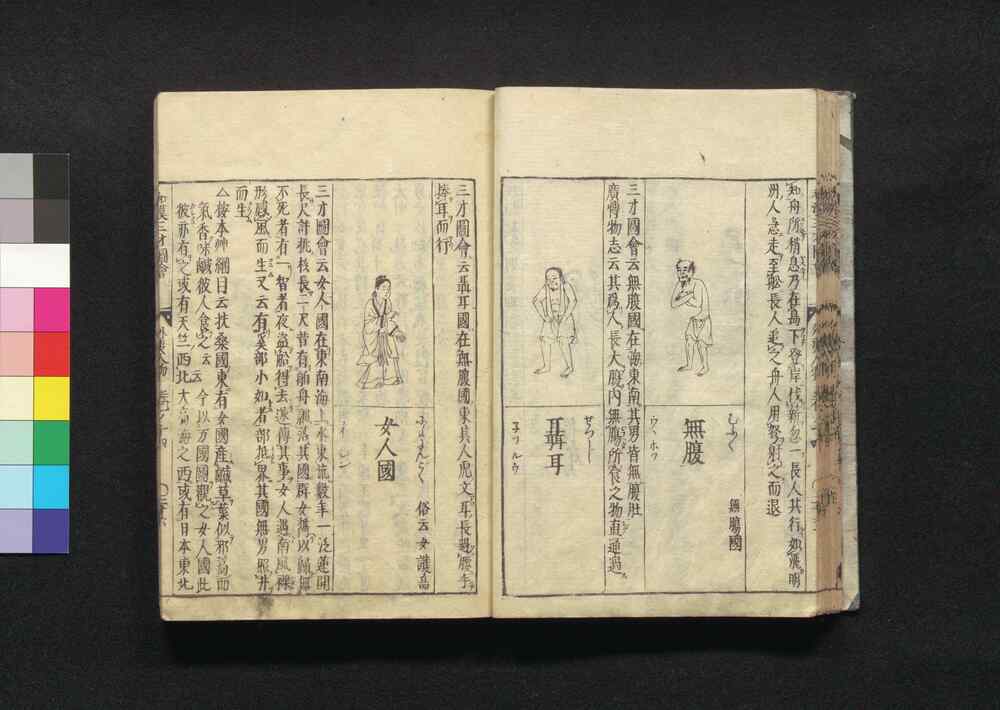 知舟所稍息乃在島下登岸伐薪忽一長人其行如飛明
州人急走至舩長人追之舟人用弩射之而退
無腸國
むふく
無腹
ウヽ ホツ
三才圖會云無腹國在海東南其男皆無腹肚
廣博物志云其爲人長大腹内無腸所食之物直通過
聶耳
三才圖會云聶耳國在無腹國東其人虎文耳長過腰手
捧耳而行
俗云女護島
女人國
三才圖會云女人國在東南海上水東流數年一泛蓮開
長丈許桃核長二尺昔有舶舟飄落其國群女携以歸無
不死者有一智者夜盗船得去遂傳其事女人遇南風裸
形感風而生又云有奚部小如者部抵界其國無男照井
而生
△按本艸綱目云扶桑國東有女國產鹹草葉似邪蒿而
氣香味鹹彼人食之云云 今以万國圖觀之女人國此
彼亦有之或有天竺西北大高海之西或有日本東北
和漢三才圖會